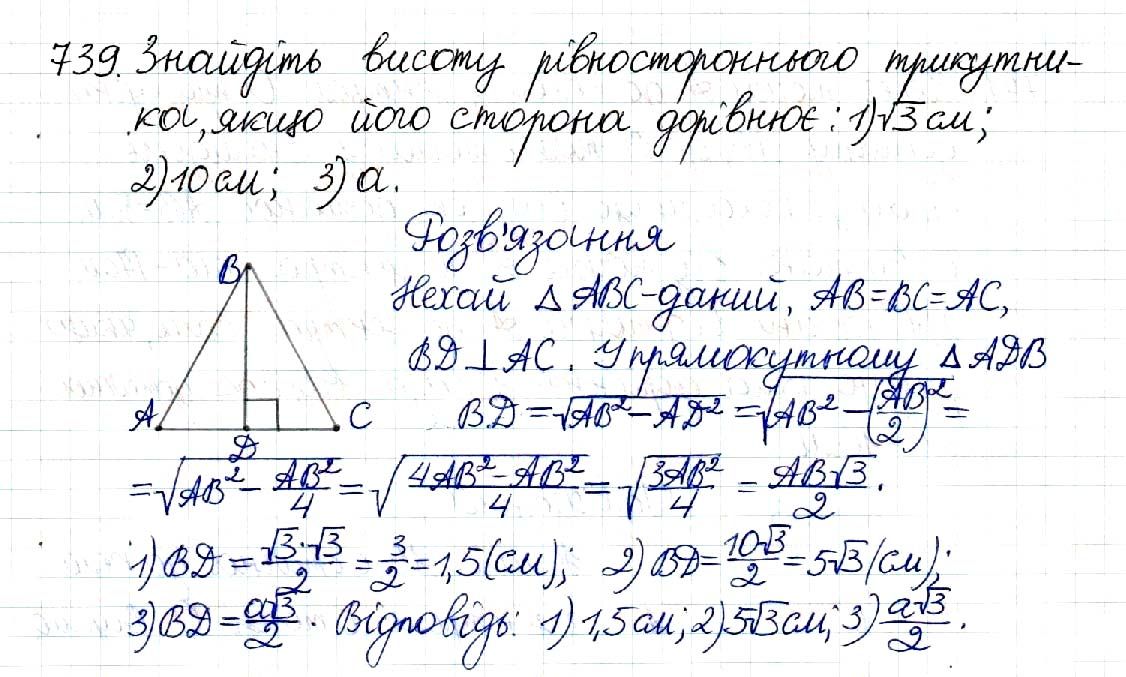 739. Знайдіть висоту рівностороннього трикутни-
ка, якщо його сторона дорівнює: 1) √3 см;
2) 10 см; 3) a.
Розв'язання
Нехай △ABC-даний, AB=BC=AC,
BD⊥AC. У прямокутному △ADB
B
A
D
C
BD = √(AB² - AD²) = √(AB² - (AB/2)²) =
= √(AB² - AB²/4) = √((4AB² - AB²)/4) = √(3AB²/4) = AB√3/2.
1) BD = √3·√3/2 = 3/2 = 1,5 (см); 2) BD = 10√3/2 = 5√3 (см);
3) BD = a√3/2. Відповідь: 1) 1,5 см; 2) 5√3 см; 3) a√3/2.